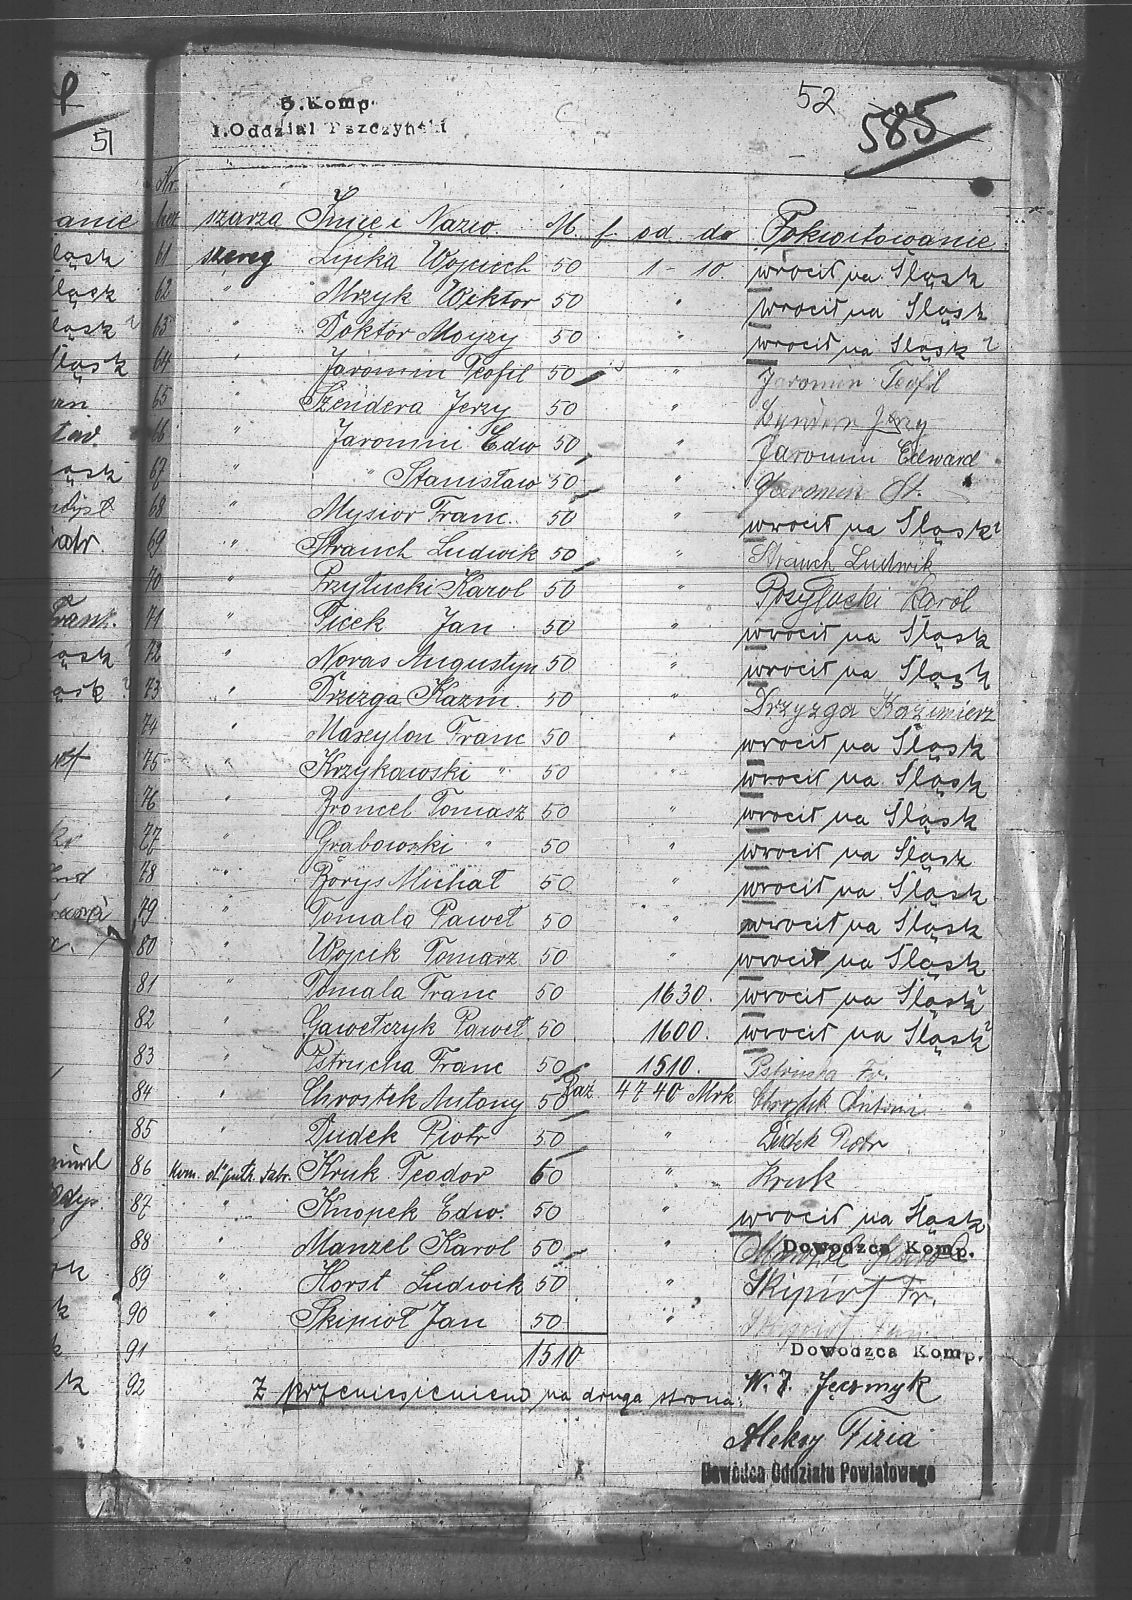 52
585
5. Komp.
1. Oddział Pszczyński
51
Nr.
bież szarża Imię i Nazw. M. f. od do Pokwitowanie
61 szereg Lipka Wojciech 50 1 - 10 wrócił na Śląsk
62 " Mrzyk Wiktor 50 " wrócił na Śląsk
63 " Doktór Mojzy 50 wrócił na Śląsk?
64 " Jaromin Teofil 50 " Jaromin Teofil
65 " Szendera Jerzy 50 "
66 " Jaromin Edw 50 " Jaromin Edward
67 " " Stanisław 50 " Jaromin St.
68 " Mysior Franc. 50 " wrócił na Śląsk?
69 " Strauch Ludwik 50 " Strauch Ludwik
70 " Przyłucki Karol 50 " Przyłucki Karol
71 " Ficek Jan 50 " wrócił na Śląsk
72 " Noras Augustyn 50 " wrócił na Śląsk
73 " Drzizga Kazm. 50 " Drzyzga Kazimierz
74 " Maseylon Franc 50 " wrócił na Śląsk
75 " Krzykawski " 50 " wrócił na Śląsk
76 " Broncel Tomasz 50 " wrócił na Śląsk
77 " Grabowski " 50 " wrócił na Śląsk
78 " Borys Michał 50 " wrócił na Śląsk
79 " Tomala Paweł 50 " wrócił na Śląsk
80 " Wojcik Tomasz 50 " wrócił na Śląsk
81 " Tomala Franc 50 1630. wrócił na Śląsk?
82 " Gawełczyk Paweł 50 1600. wrócił na Śląsk?
83 " Pstrucha Franc 50 1510. Pstrucha Fr.
84 " Chrostek Antony 50 Raz 4740 Mrk Chrostek Antoni
85 " Dudek Piotr 50 Dudek Piotr
86 Kruk Teodor 60 " Kruk
87 " Knopek Edw. 50 " wrócił na Śląsk
88 " Manzel Karol 50 " Manzel Karol
Dowódca Komp.
89 " Horst Ludwik 50 " Skipioł Fr.
90 " Skipioł Jan 50 "
Dowódca Komp.
91 1510
92 Z przeniesieniem na druga strona: W. Z. Jęczmyk
Aleksy Fizia
Dowódca Oddziału Powiatowego